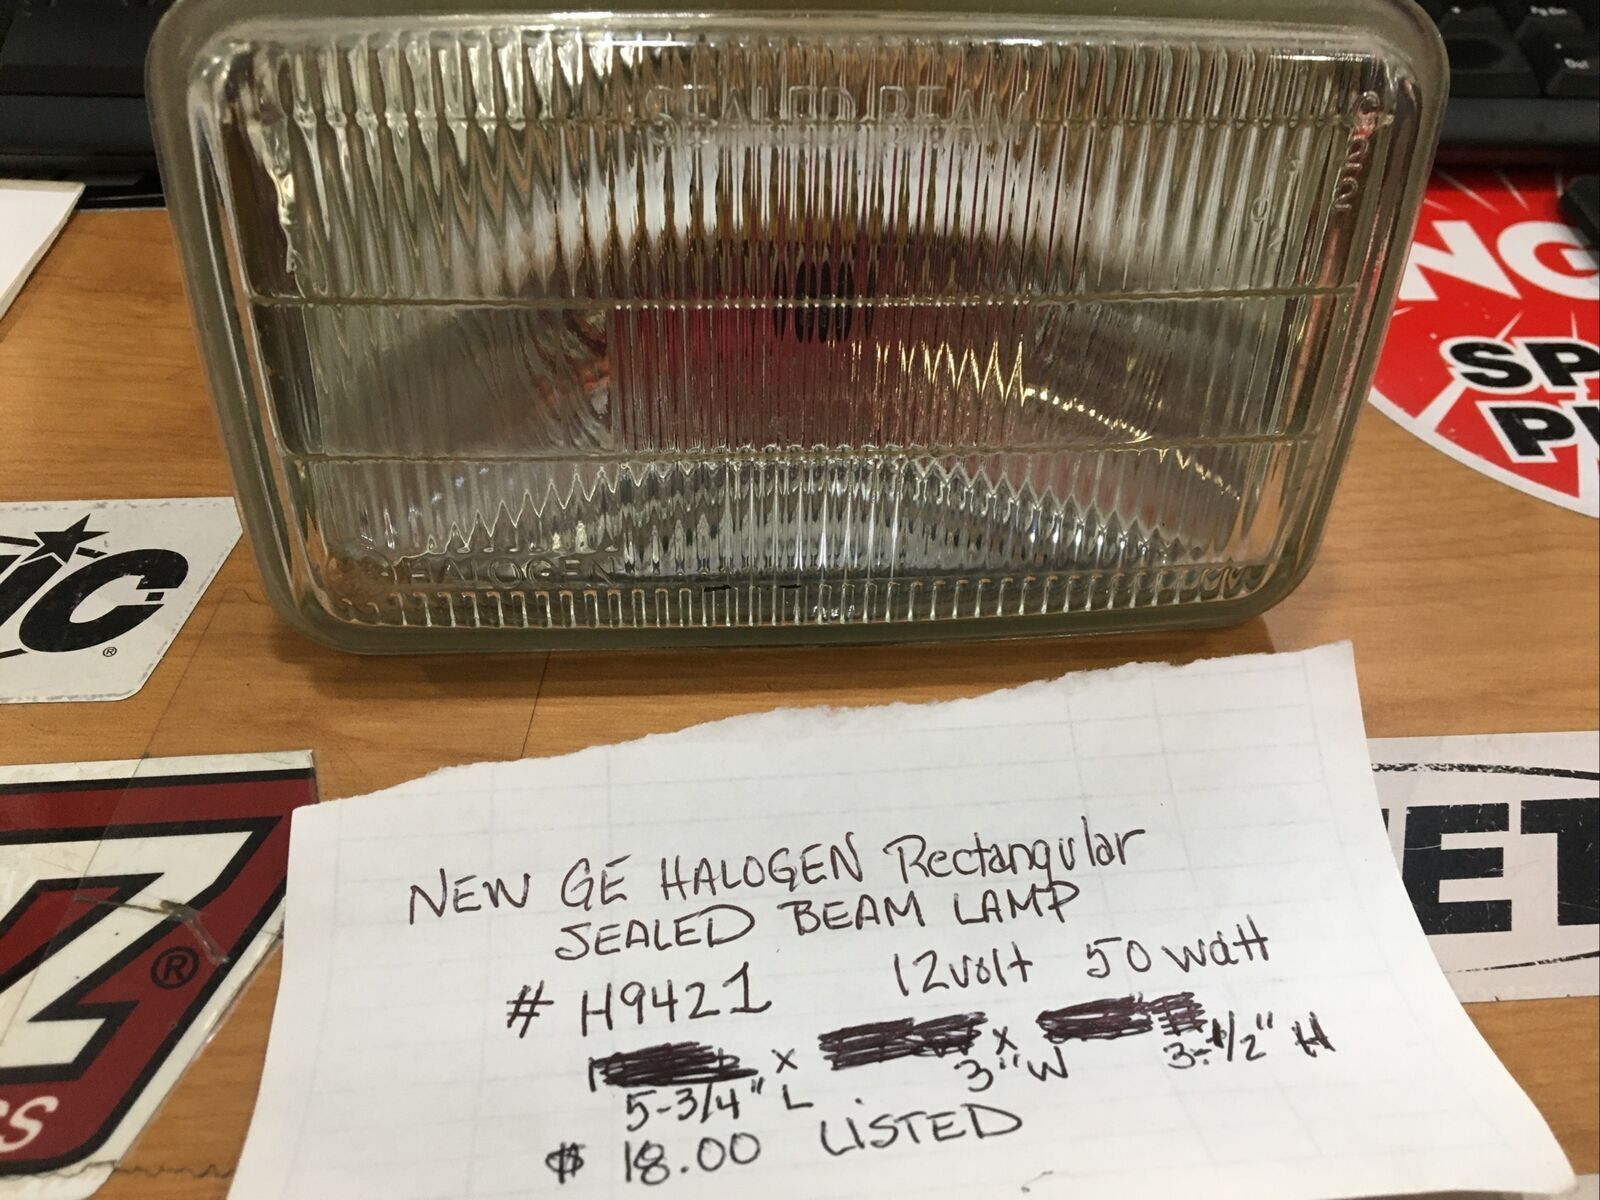 SEALED BEAM
HALOGEN
NG
SP
P
IC
®
®
CS
ET
NEW GE HALOGEN Rectangular
SEALED BEAM LAMP
# H9421 12volt 50 watt
x x
5-3/4" L 3" W 3-1/2" H
$ 18.00 LISTED